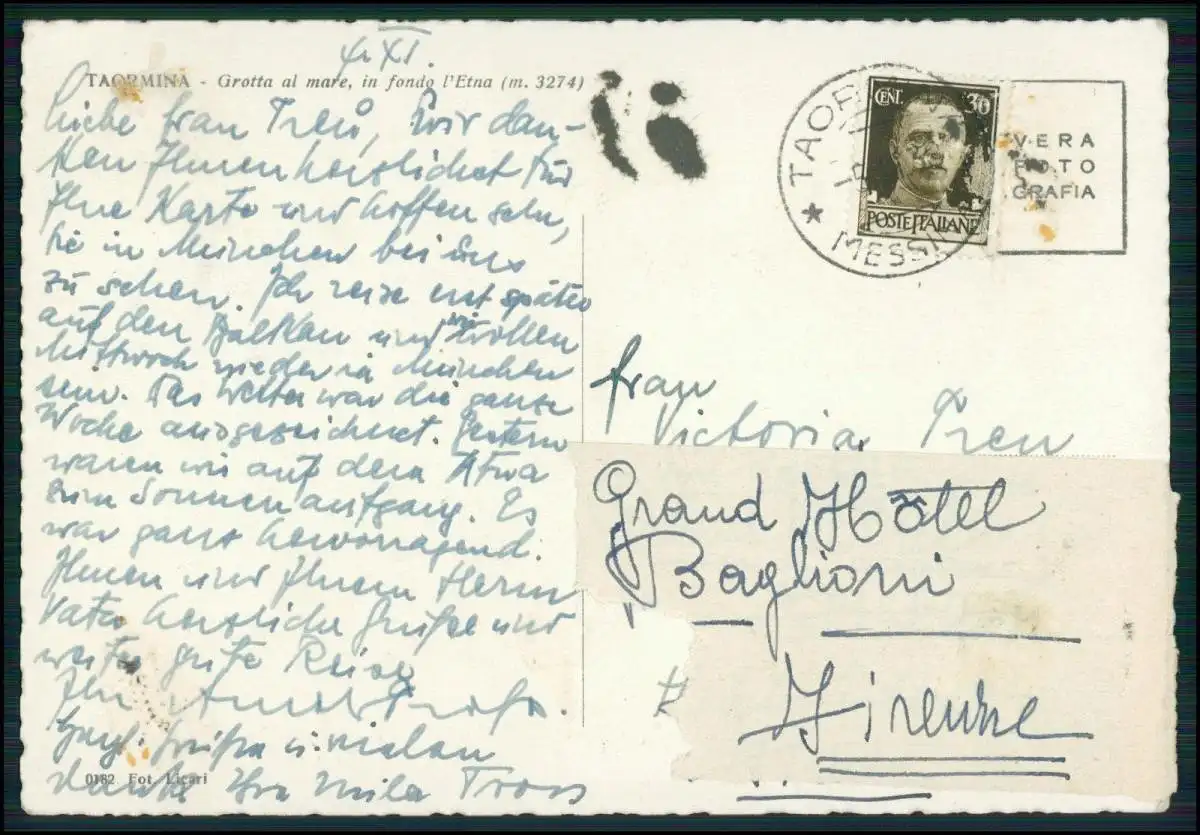 4. XI.
TAORMINA - Grotta al mare, in fondo l'Etna (m. 3274)
Liebe Frau Treu, Wir dan-
ken Ihnen herzlichst für
Ihre Karte und hoffen sehr,
Sie in München bei uns
zu sehen. Ich reise erst später
auf den Balkan und wir wollen
Mittwoch wieder in München
sein. Das Wetter war die ganze
Woche ausgezeichnet. Gestern
waren wir auf dem Ätna
zum Sonnenaufgang. Es
war ganz hervorragend.
Ihnen und Ihrem Herrn
Vater herzliche Grüße und
weiter gute Reise
Ihr
Herzl. Grüße u. vielen
Dank Ihre Mila
0182 Fot. Licari
CENT. 30
POSTE ITALIANE
TAOR
MESSIN
VERA
FOTO
GRAFIA
Frau
Victoria Treu
Grand Hôtel
Baglioni
Firenze